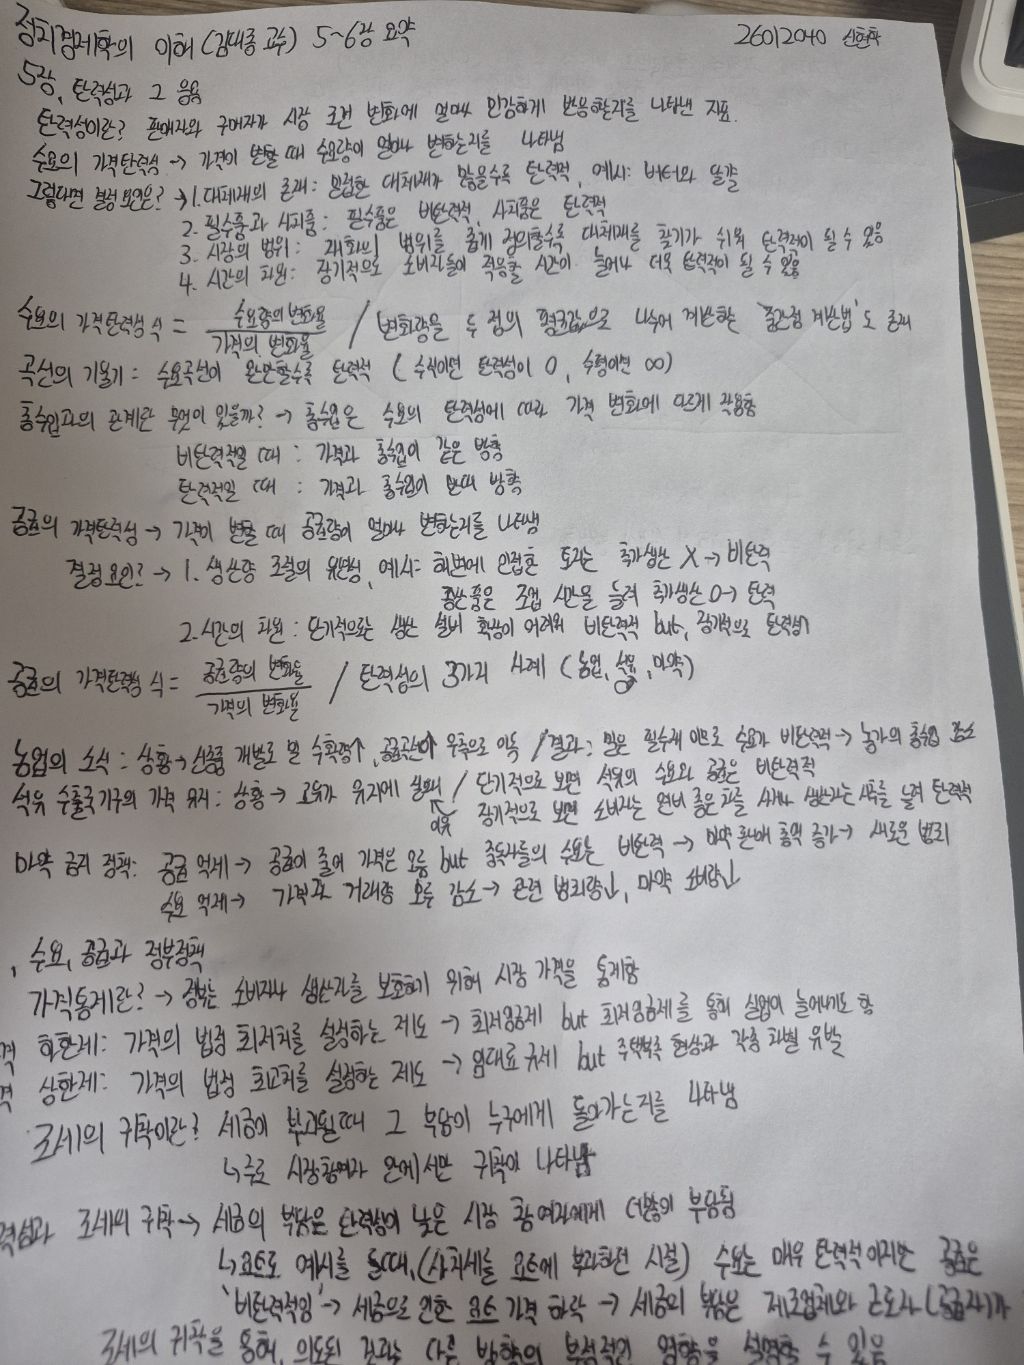 정치경제학의 이해 (김대종 교수) 5~6장 요약
26012040 신현학
5장, 탄력성과 그 응용
탄력성이란? 판매자와 구매자가 시장 조건 변화에 얼마나 민감하게 반응할지를 나타낸 지표.
수요의 가격탄력성 → 가격이 변할 때 수요량이 얼마나 변하는지를 나타냄
그렇다면 결정 요인은? → 1. 대체재의 존재: 밀접한 대체재가 많을수록 탄력적, 예시: 버터와 달걀
2. 필수품과 사치품: 필수품은 비탄력적, 사치품은 탄력적
3. 시장의 범위: 재화의 범위를 좁게 정의할수록 대체재를 찾기가 쉬워 탄력적이 될 수 있음
4. 시간의 차원: 장기적으로 소비자들이 적응할 시간이 늘어나 더욱 탄력적이 될 수 있음
수요의 가격탄력성 식 = 수요량의 변화율 / 변화량을 두 점의 평균값으로 나누어 계산하는 '중간점 계산법'도 존재
가격의 변화율
곡선의 기울기: 수요곡선이 완만할수록 탄력적 (수직이면 탄력성이 0, 수평이면 ∞)
총수입과의 관계란 무엇이 있을까? → 총수입은 수요의 탄력성에 따라 가격 변화에 다르게 작용함
비탄력적일 때: 가격과 총수입이 같은 방향
탄력적일 때: 가격과 총수입이 반대 방향
공급의 가격탄력성 → 가격이 변할 때 공급량이 얼마나 변하는지를 나타냄
결정요인? → 1. 생산량 조절의 유연성, 예시: 해변에 인접한 토지는 추가생산 X → 비탄력
공산품은 조업 시간을 늘려 추가생산 O → 탄력
2. 시간의 차원: 단기적으로는 생산 설비 확장이 어려워 비탄력적 but, 장기적으로 탄력성↑
공급의 가격탄력성 식 = 공급량의 변화율 / 탄력성의 3가지 사례 (농업, 석유, 마약)
가격의 변화율
농업의 소식: 상황 → 신품종 개발로 밀 수확량↑, 공급곡선이 우측으로 이동 / 결과: 밀은 필수재 이므로 수요가 비탄력적 → 농가의 총수입 감소
석유 수출국기구의 가격 유지: 상황 → 고유가 유지에 실패 / 단기적으로 보면 석유의 수요와 공급은 비탄력적
이유 장기적으로 보면 소비자는 연비 좋은 차를 사거나 생산자는 시추를 늘려 탄력적
마약 금지 정책: 공급 억제 → 공급이 줄어 가격은 오름 but 중독자들의 수요는 비탄력 → 마약 판매 총액 증가 → 새로운 범죄
수요 억제 → 가격과 거래량 모두 감소 → 관련 범죄량↓, 마약 소비량↓
, 수요, 공급과 정부정책
가격통제란? → 정부는 소비자나 생산자를 보호하기 위해 시장 가격을 통제함
격 하한제: 가격의 법정 최저치를 설정하는 제도 → 최저임금제 but 최저임금제를 통해 실업이 늘어나기도 함
격 상한제: 가격의 법정 최고치를 설정하는 제도 → 임대료 규제 but 주택부족 현상과 각종 차별 유발
조세의 귀착이란? 세금이 부과될때 그 부담이 누구에게 돌아가는지를 나타냄
↳ 주로 시장참여자 안에서만 귀착이 나타남
력성과 조세의 귀착 → 세금의 부담은 탄력성이 낮은 시장 참여자에게 더많이 부담됨
↳ 요트로 예시를 들때, (사치세를 요트에 부과하던 시절) 수요는 매우 탄력적이지만 공급은
'비탄력적임' → 세금으로 인한 요트 가격 하락 → 세금의 부담은 제조업체와 근로자 (공급자)가
조세의 귀착을 통해, 의도된 것과는 다른 방향의 부정적인 영향을 설명할 수 있음